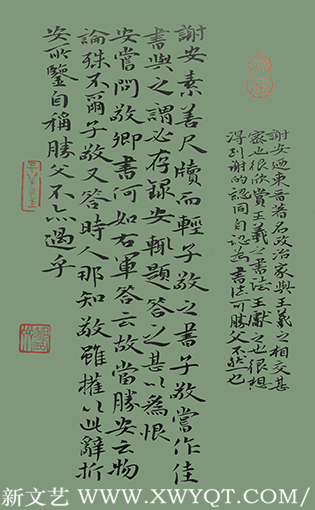 謝安素善尺牘而輕子敬之書子敬嘗作佳
書與之謂必存録安輒題答之甚以為恨
安嘗問敬卿書何如右軍答云故當勝安云物
論殊不爾子敬又答時人那知敬雖權以此辭折
安所鑒自稱勝父不亦過乎
謝安迺東晋著名政治家與王羲之相交甚
密也很欣賞王羲之書法王獻之也很想
得到謝的認同自認為書法可勝父不然也
新文艺 WWW.XWYQT.COM/